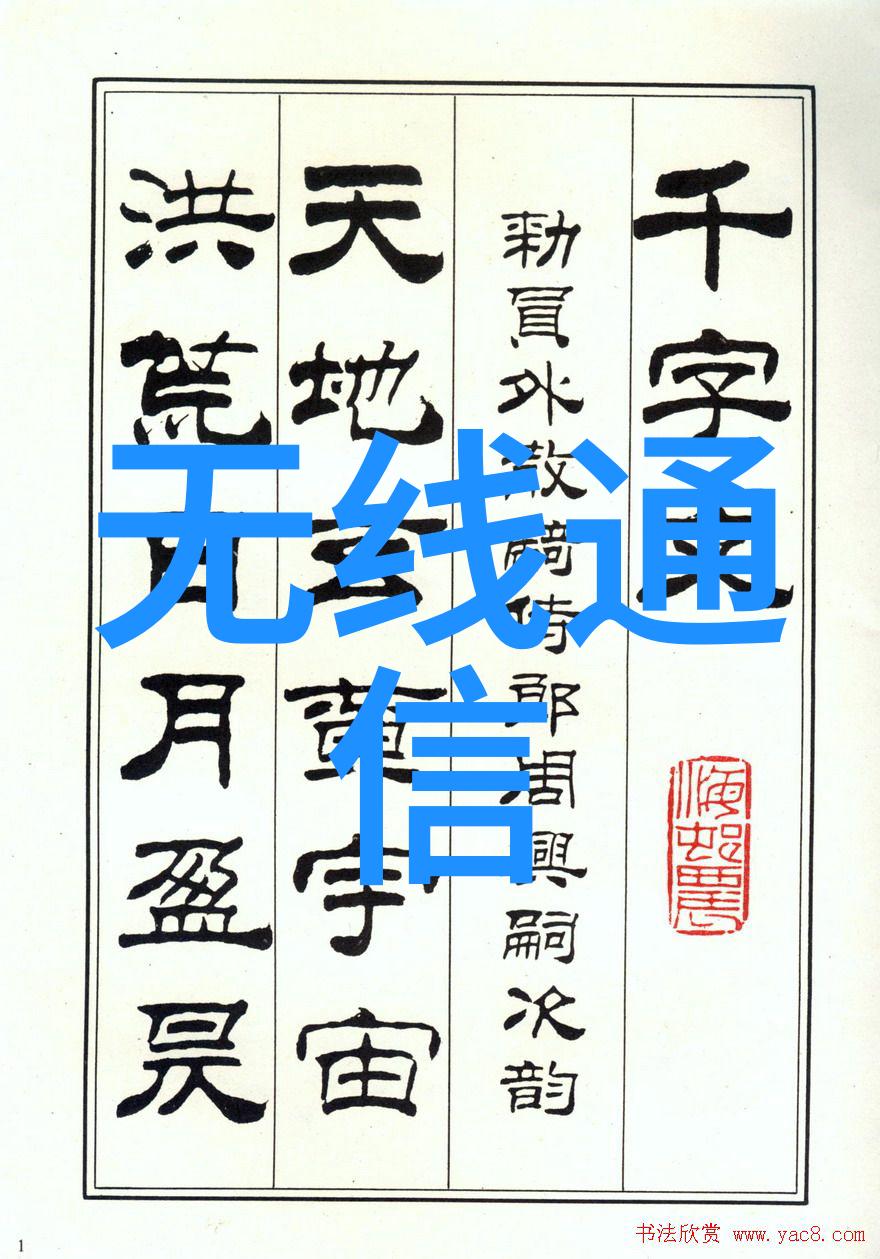 千字文
勑員外散騎侍郎周興嗣次韵
天地玄黃宇宙
洪荒日月盈昃
无线通
信
1
书法欣赏 www.yac8.com